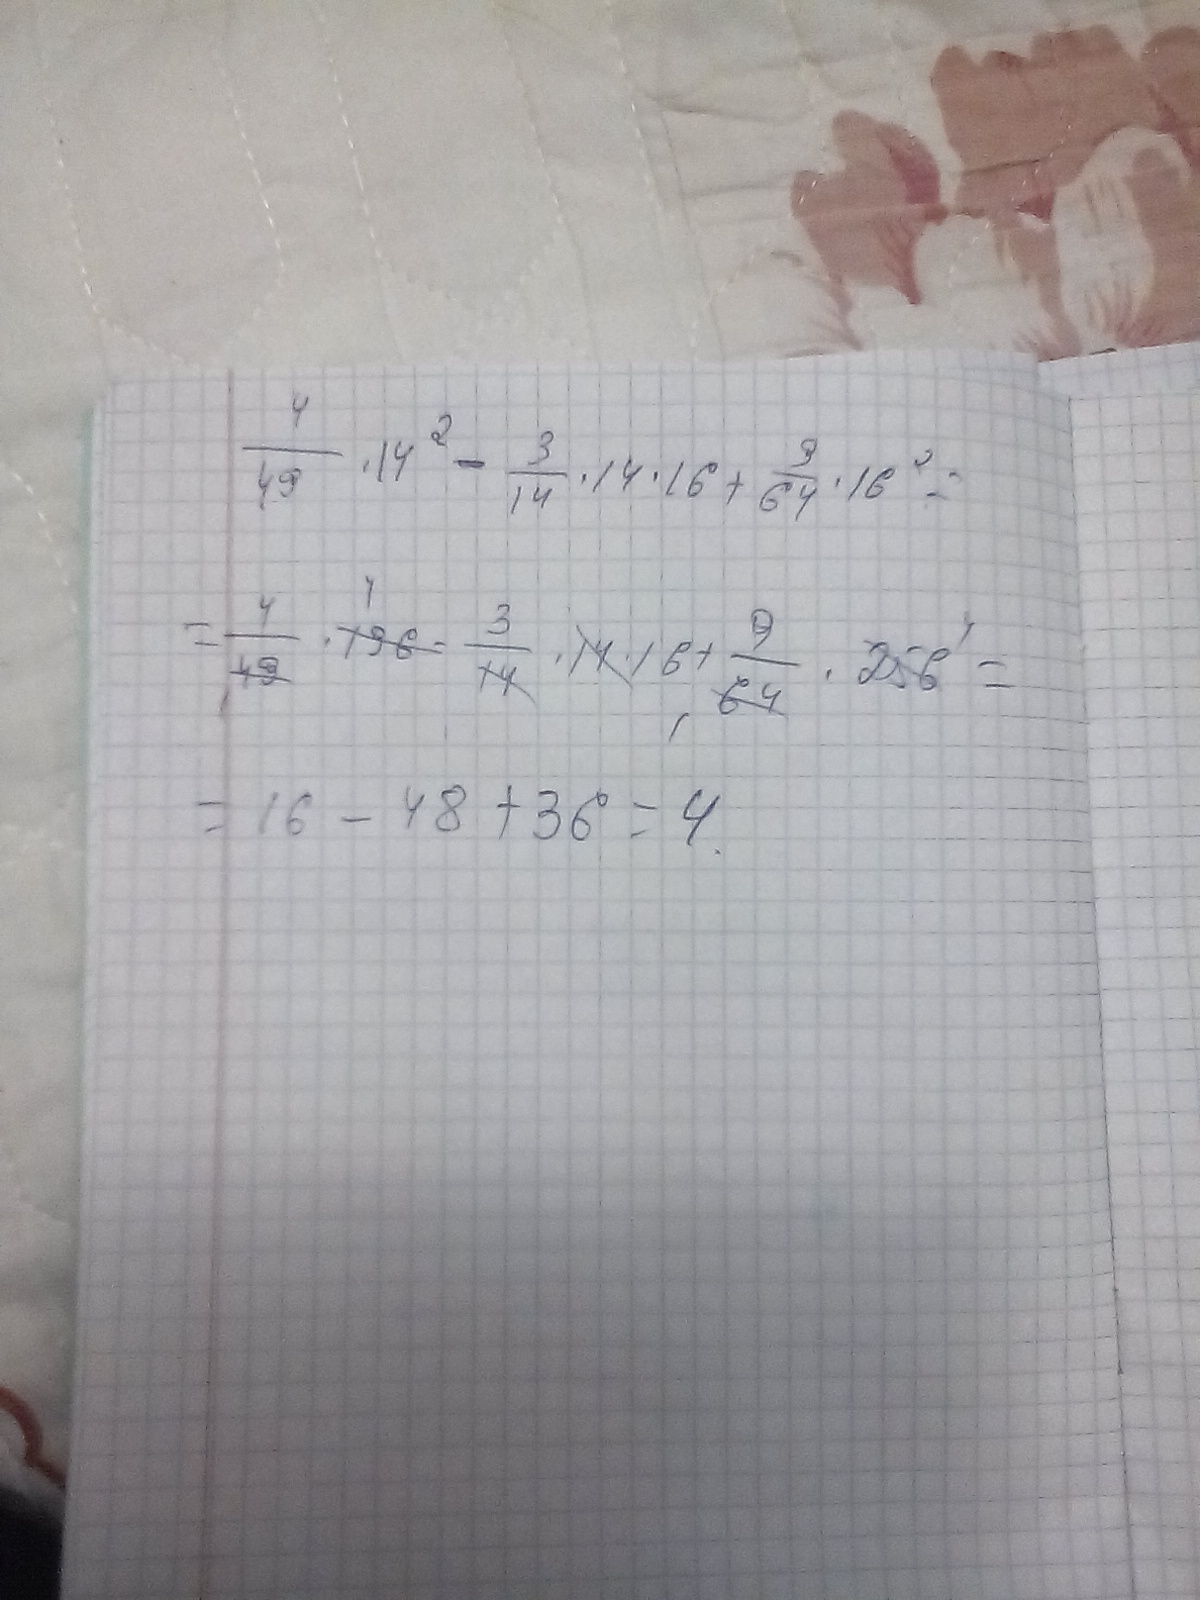 4/49 · 14² - 3/14 · 14 · 16 + 9/64 · 16² =
= 4/49 · 196 - 3/14 · 14 · 16 + 9/64 · 256 =
= 16 - 48 + 36 = 4.